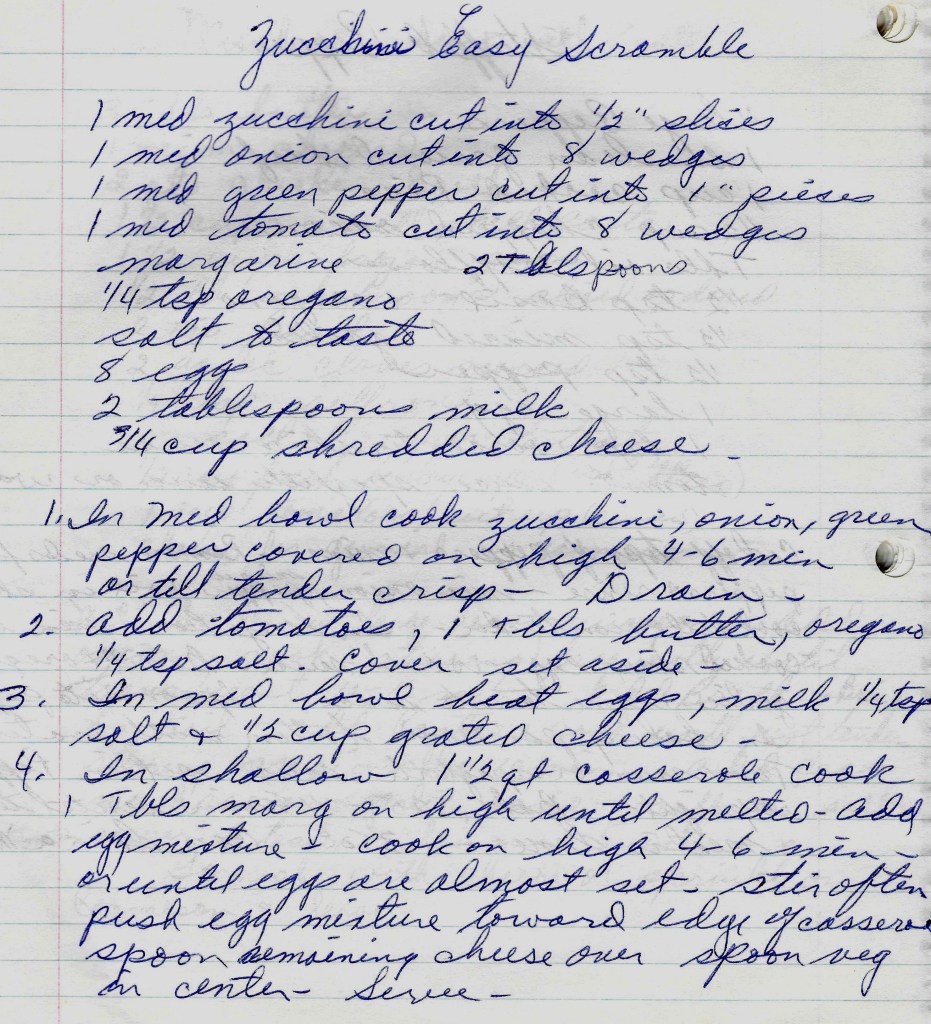 Zucchini Easy Scramble
1 med zucchini cut into 1/2" slices
1 med onion cut into 8 wedges
1 med green pepper cut into 1" pieces
1 med tomato cut into 8 wedges
margarine 2 Tblspoons
1/4 tsp oregano
salt to taste
8 eggs
2 tablespoons milk
3/4 cup shredded cheese -
1. In med bowl cook zucchini, onion, green
pepper covered on high 4-6 min
or till tender crisp - Drain -
2. add tomatoes, 1 Tbls butter, oregano
1/4 tsp salt. Cover set aside -
3. In med bowl beat eggs, milk 1/4 tsp
salt + 1/2 cup grated cheese -
4. In shallow 1 1/2 qt casserole cook
1 Tbls marg on high until melted - add
egg mixture - cook on high 4-6 min -
or until eggs are almost set - stir often
push egg mixture toward edge of cassero
spoon remaining cheese over spoon veg
in center - Serve -